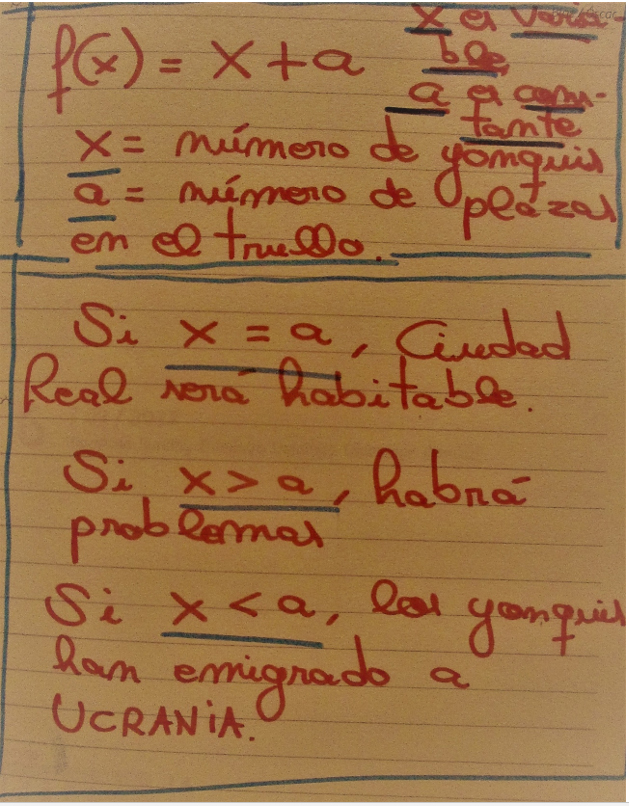 f(x) = x + a
x es varia-
ble,
a es cons-
tante
x = número de yonquis
a = número de plazas
en el trullo.
Si x = a, Ciudad
Real será habitable.
Si x > a, habrá
problemas
Si x < a, los yonquis
han emigrado a
UCRANIA.